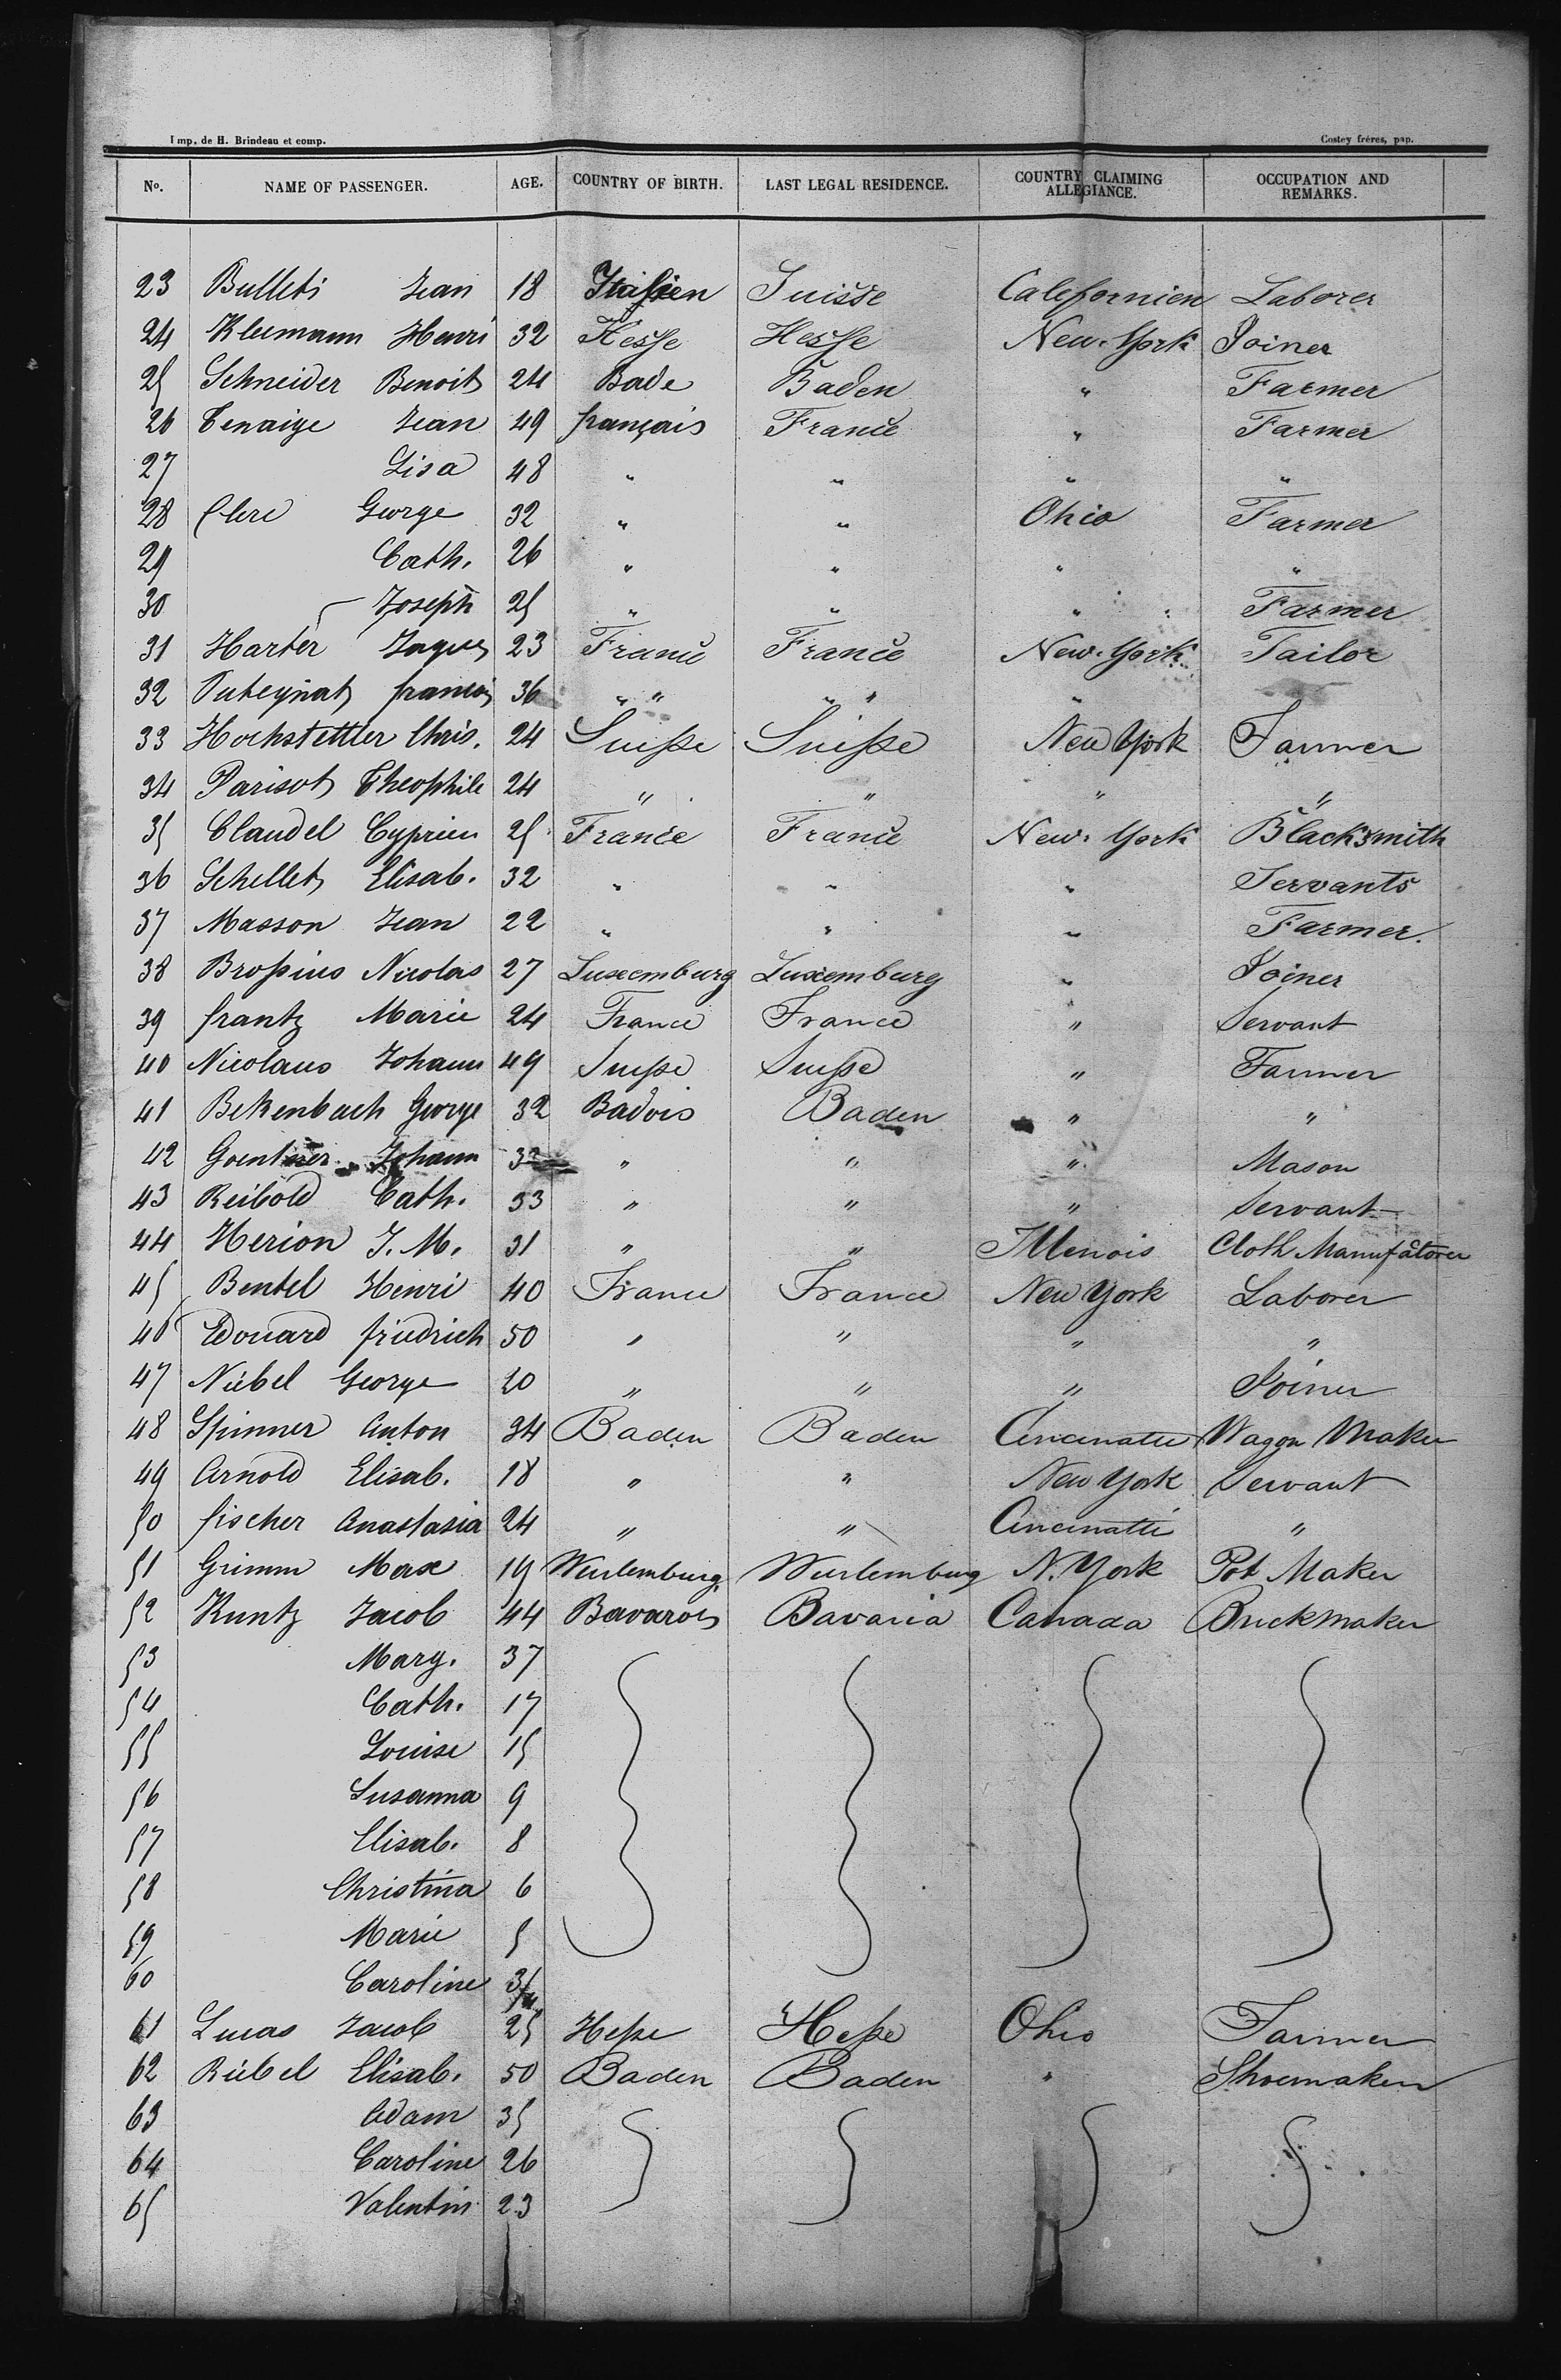 Imp. de H. Brindeau et comp. Costey fréres, pap.
No. NAME OF PASSENGER. AGE. COUNTRY OF BIRTH. LAST LEGAL RESIDENCE. COUNTRY CLAIMING ALLEGIANCE. OCCUPATION AND REMARKS.
23 Bulleti Jean 18 Italien Suisse Californien Laborer
24 Kleemann Henri 32 Hesse Hesse New-York Joiner
25 Schneider Benoit 24 Bade Baden " Farmer
26 Tenaige Jean 49 français France " Farmer
27 Lisa 48 " " " "
28 Clerc George 32 " " Ohio Farmer
29 Cath. 26 " " " "
30 Joseph 25 " " " Farmer
31 Harter Jaques 23 France France New-York Tailor
32 Puteynat francois 36 " " " " "
33 Hochstettler Chris. 24 Suisse Suisse New York Farmer
34 Parisot Theophile 24 " " " "
35 Claudel Cyprien 25 France France New-York Blacksmith
36 Schellet Elisab. 32 " " " Servants
37 Masson Jean 22 " " " Farmer.
38 Brossius Nicolas 27 Luxemburg Luxemburg " Joiner
39 frantz Marie 24 France France " Servant
40 Nicolaus Johann 49 Suisse Suisse " Farmer
41 Bekenbach George 32 Badois Baden " "
42 Johann 32 " " " Mason
43 Reibold Cath. 33 " " " Servant
44 Herion J. M. 31 " " Illenois Cloth Manufatorer
45 Bentel Henri 40 France France New York Laborer
46 Edouard friedrich 50 " " " "
47 Niebel George 20 " " " Joiner
48 Spinner Anton 34 Baden Baden Cincinatti Wagon Maker
49 Arnold Elisab. 18 " " New York Servant
50 fischer Anastasia 24 " " Cincinatti "
51 Grimm Max 19 Wurtemburg Wurtemburg N. York Pot Maker
52 Kuntz Jacob 44 Bavarois Bavaria Canada Brickmaker
53 Marg. 37
54 Cath. 17
55 Louise 15
56 Susanna 9
57 Elisab. 8
58 Christina 6
59 Marie 5
60 Caroline
61 Lucas Jacob 25 Hesse Hesse Ohio Farmer
62 Riebel Elisab. 50 Baden Baden " Shoemaker
63 Adam 35
64 Caroline 26
65 Valentin 23